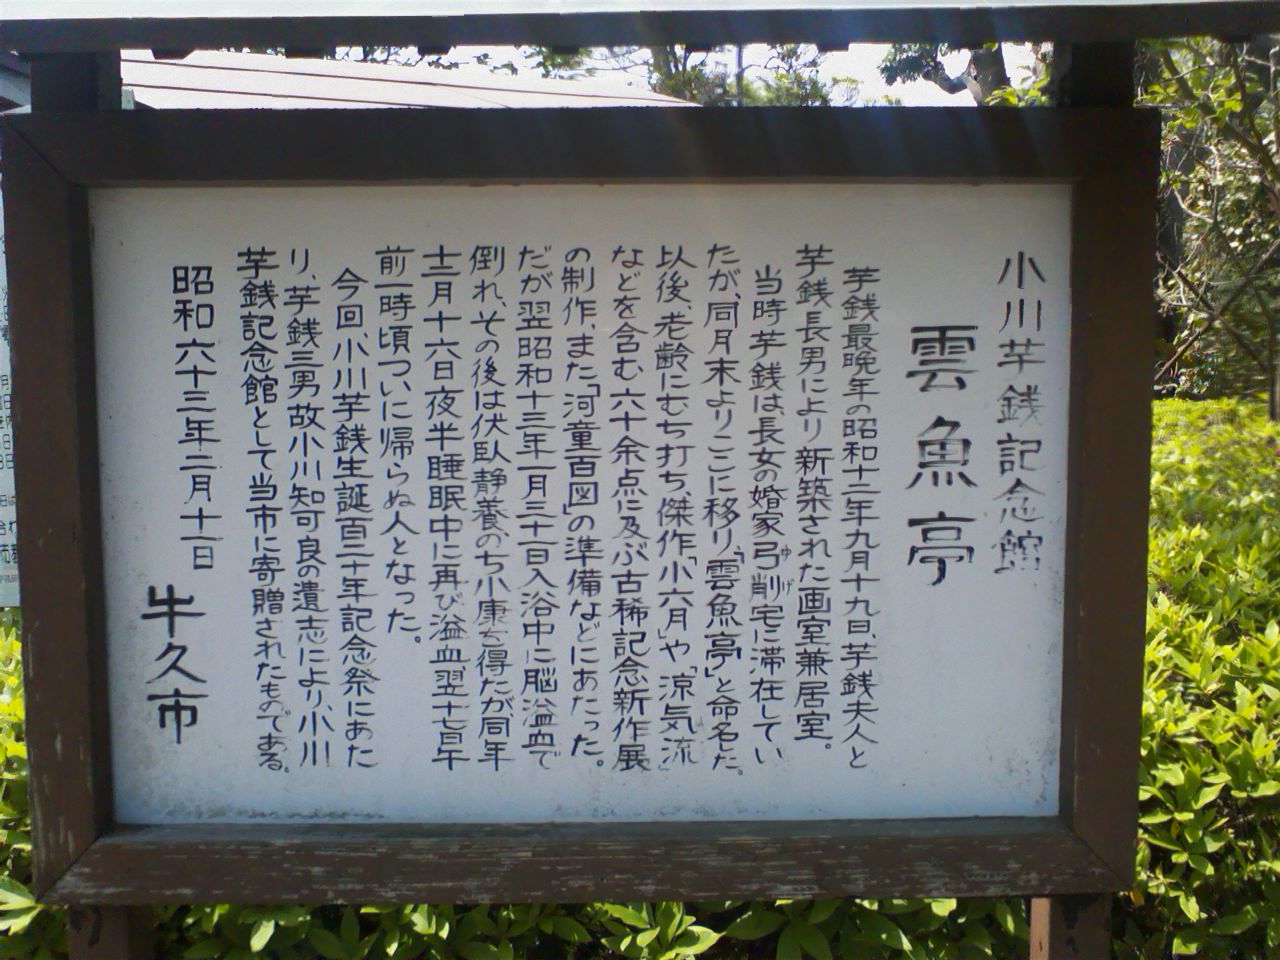 小川芋銭記念館
雲魚亭
芋銭最晩年の昭和十二年九月十九日、芋銭夫人と
芋銭長男により新築された画室兼居室。
当時芋銭は、長女の婚家弓削宅に滞在してい
ゆげ
たが、同月末よりここに移り「雲魚亭」と命名した。
以後、老齢にむち打ち、傑作「小六月」や「涼気流」
などを含む六十余点に及ぶ古稀記念新作展
の制作、また「河童百図」の準備などにあたった。
だが翌昭和十三年一月三十一日入浴中に脳溢血で
倒れ、その後は伏臥静養ののち小康を得たが、同年
十二月十六日夜半睡眠中に再び溢血、翌十七日午
前一時頃ついに帰らぬ人となった。
今回、小川芋銭生誕百二十年記念祭にあた
り、芋銭三男故小川知可良の遺志により、小川
芋銭記念館として当市に寄贈されたものである。
昭和六十三年二月十一日
牛久市